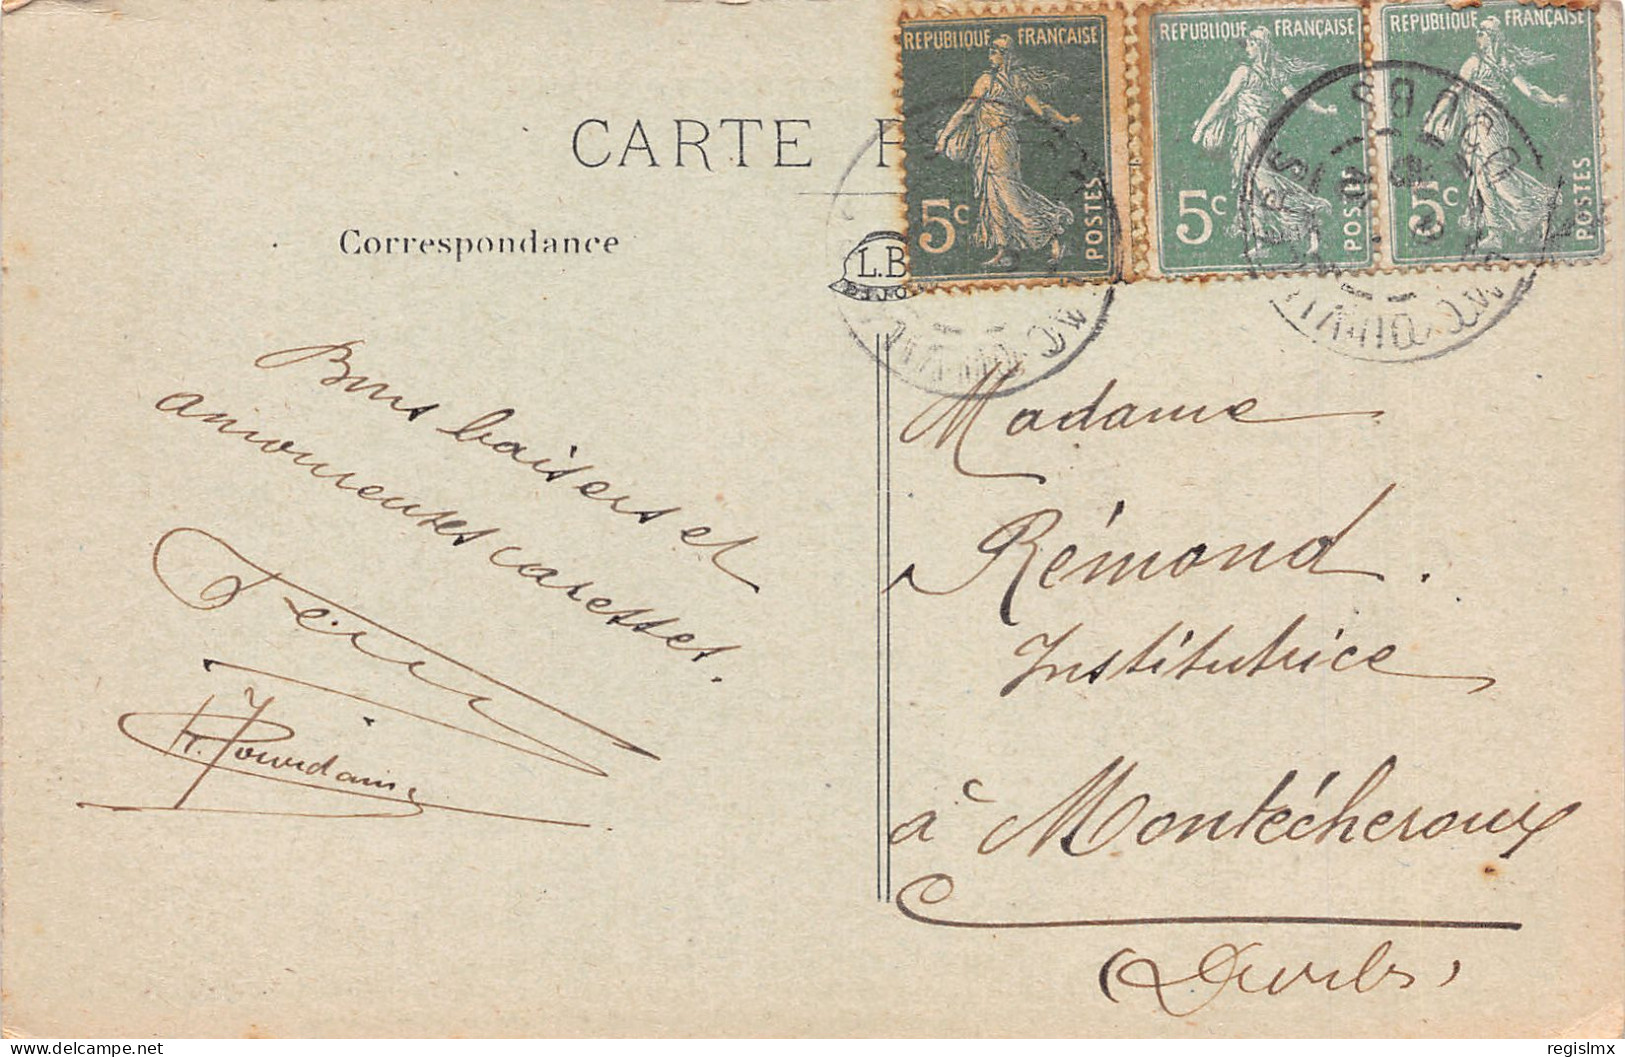 REPUBLIQUE FRANÇAISE
5c
POSTES
REPUBLIQUE FRANÇAISE
5c
POSTES
REPUBLIQUE FRANÇAISE
5c
POSTES
CARTE P
Correspondance
L.B
DIJON
DOUBS
Bons baisers et
amoureuses caresses.
H. Jourdain
Madame
Rémond.
Institutrice
à Montécheroux
(Doubs)
delcampe.net
regislmx